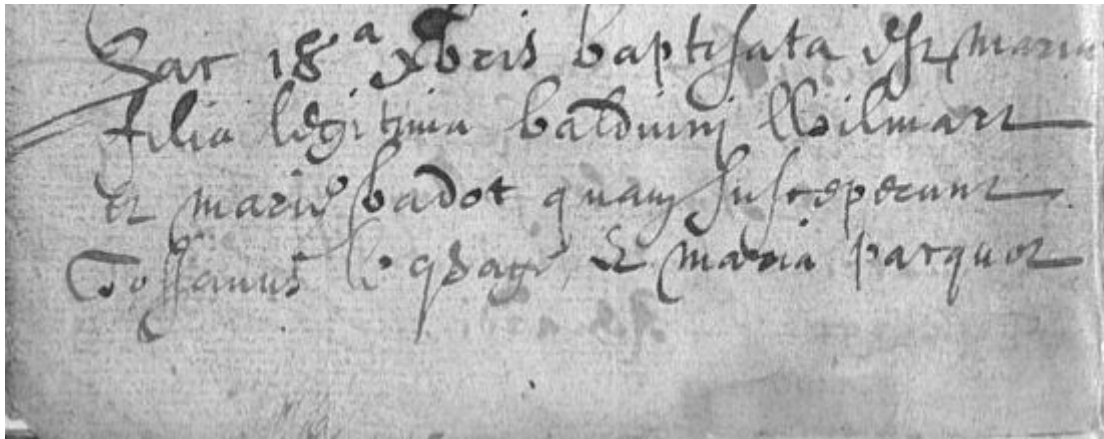 Hac 18ª Xbris baptisata est maria
filia legitima balduini Wilmart
et mariæ badot quam susceperunt
Tossanus et maria pacquot